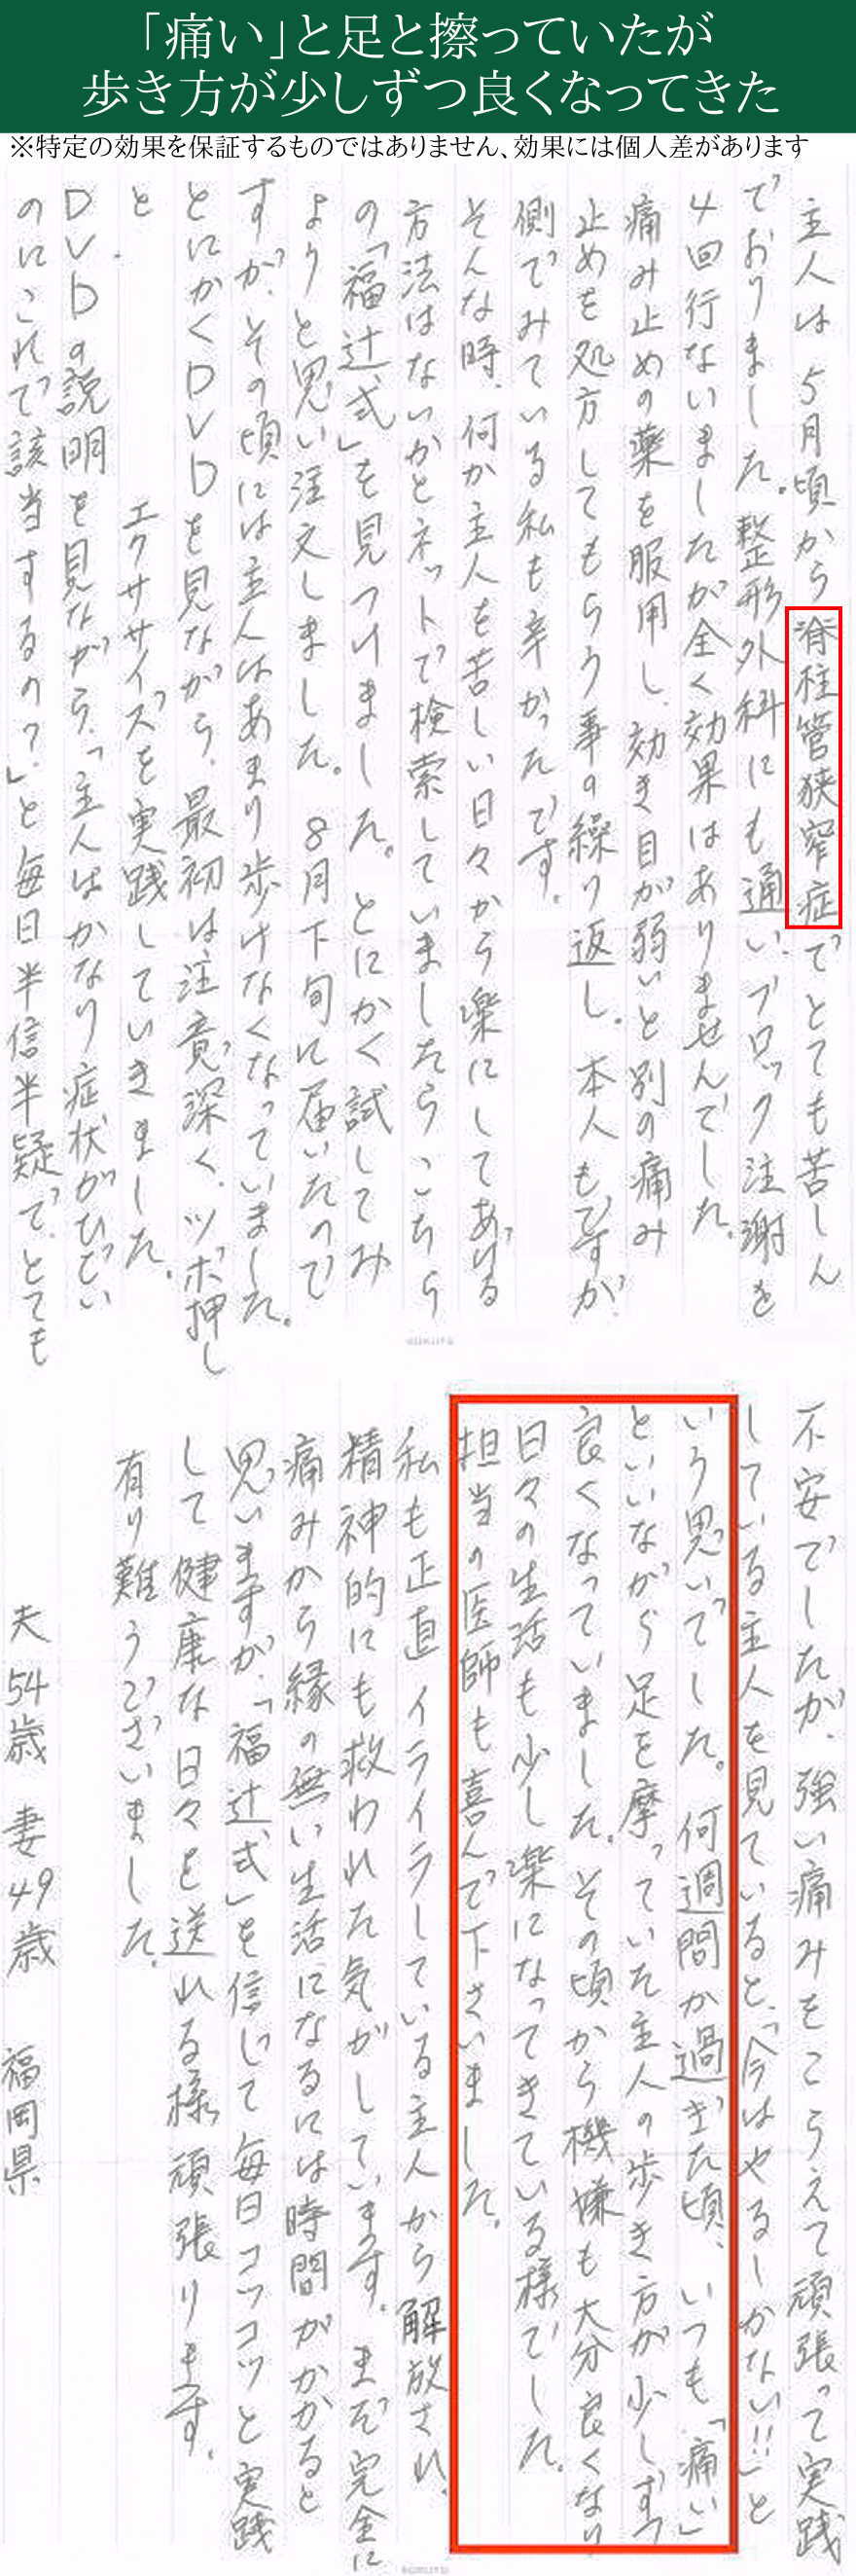 「痛い」と足と擦っていたが
歩き方が少しずつ良くなってきた
※特定の効果を保証するものではありません、効果には個人差があります
主人は 5月頃から脊柱管狭窄症でとても苦しん
でおりました。整形外科にも通い、ブロック注謝を
4回行ないましたが全く効果はありませんでした。
痛み止めの薬を服用し、効き目が弱いと別の痛み
止めを処方してもらう事の繰り返し。本人も、ですが、
側でみている私も辛かったです。
そんな時、何か主人を苦しい日々から楽にしてあげる
方法はないかとネットで検索していましたらこちら
の「福辻式」を見つけました。とにかく試してみ
ようと思い注文しました。8月下旬に届いたので
すが、その頃には主人はあまり歩けなくなっていました。
とにかくDVDを見ながら、最初は注意深く、ツボ押し
と、エクササイズを実践していきました。
DVDの説明を見ながら、「主人はかなり症状がひどい
のにこれで該当するの?」と毎日半信半疑で、とても
KOKUYO
不安でしたが、強い痛みをこらえて頑張って実践
している主人を見ていると、「今はやるしかない!!」と
いう思いでした。何週間か過ぎた頃、いつも「痛い」
といいながら足を摩っていた主人の歩き方が少しずつ
良くなっていました。その頃から機嫌も大分良くなり
日々の生活も少し楽になってきている様でした。
担当の医師も喜んで下さいました。
私も正直イライラしている主人から解放され、
精神的にも救われた気がしています。まだ完全に
痛みから縁の無い生活になるには時間がかかると
思いますが、「福辻式」を信じて毎日コツコツと実践
して健康な日々を送れる様頑張ります。
有り難うございました。
夫54歳 妻49歳 福岡県
KOKUYO